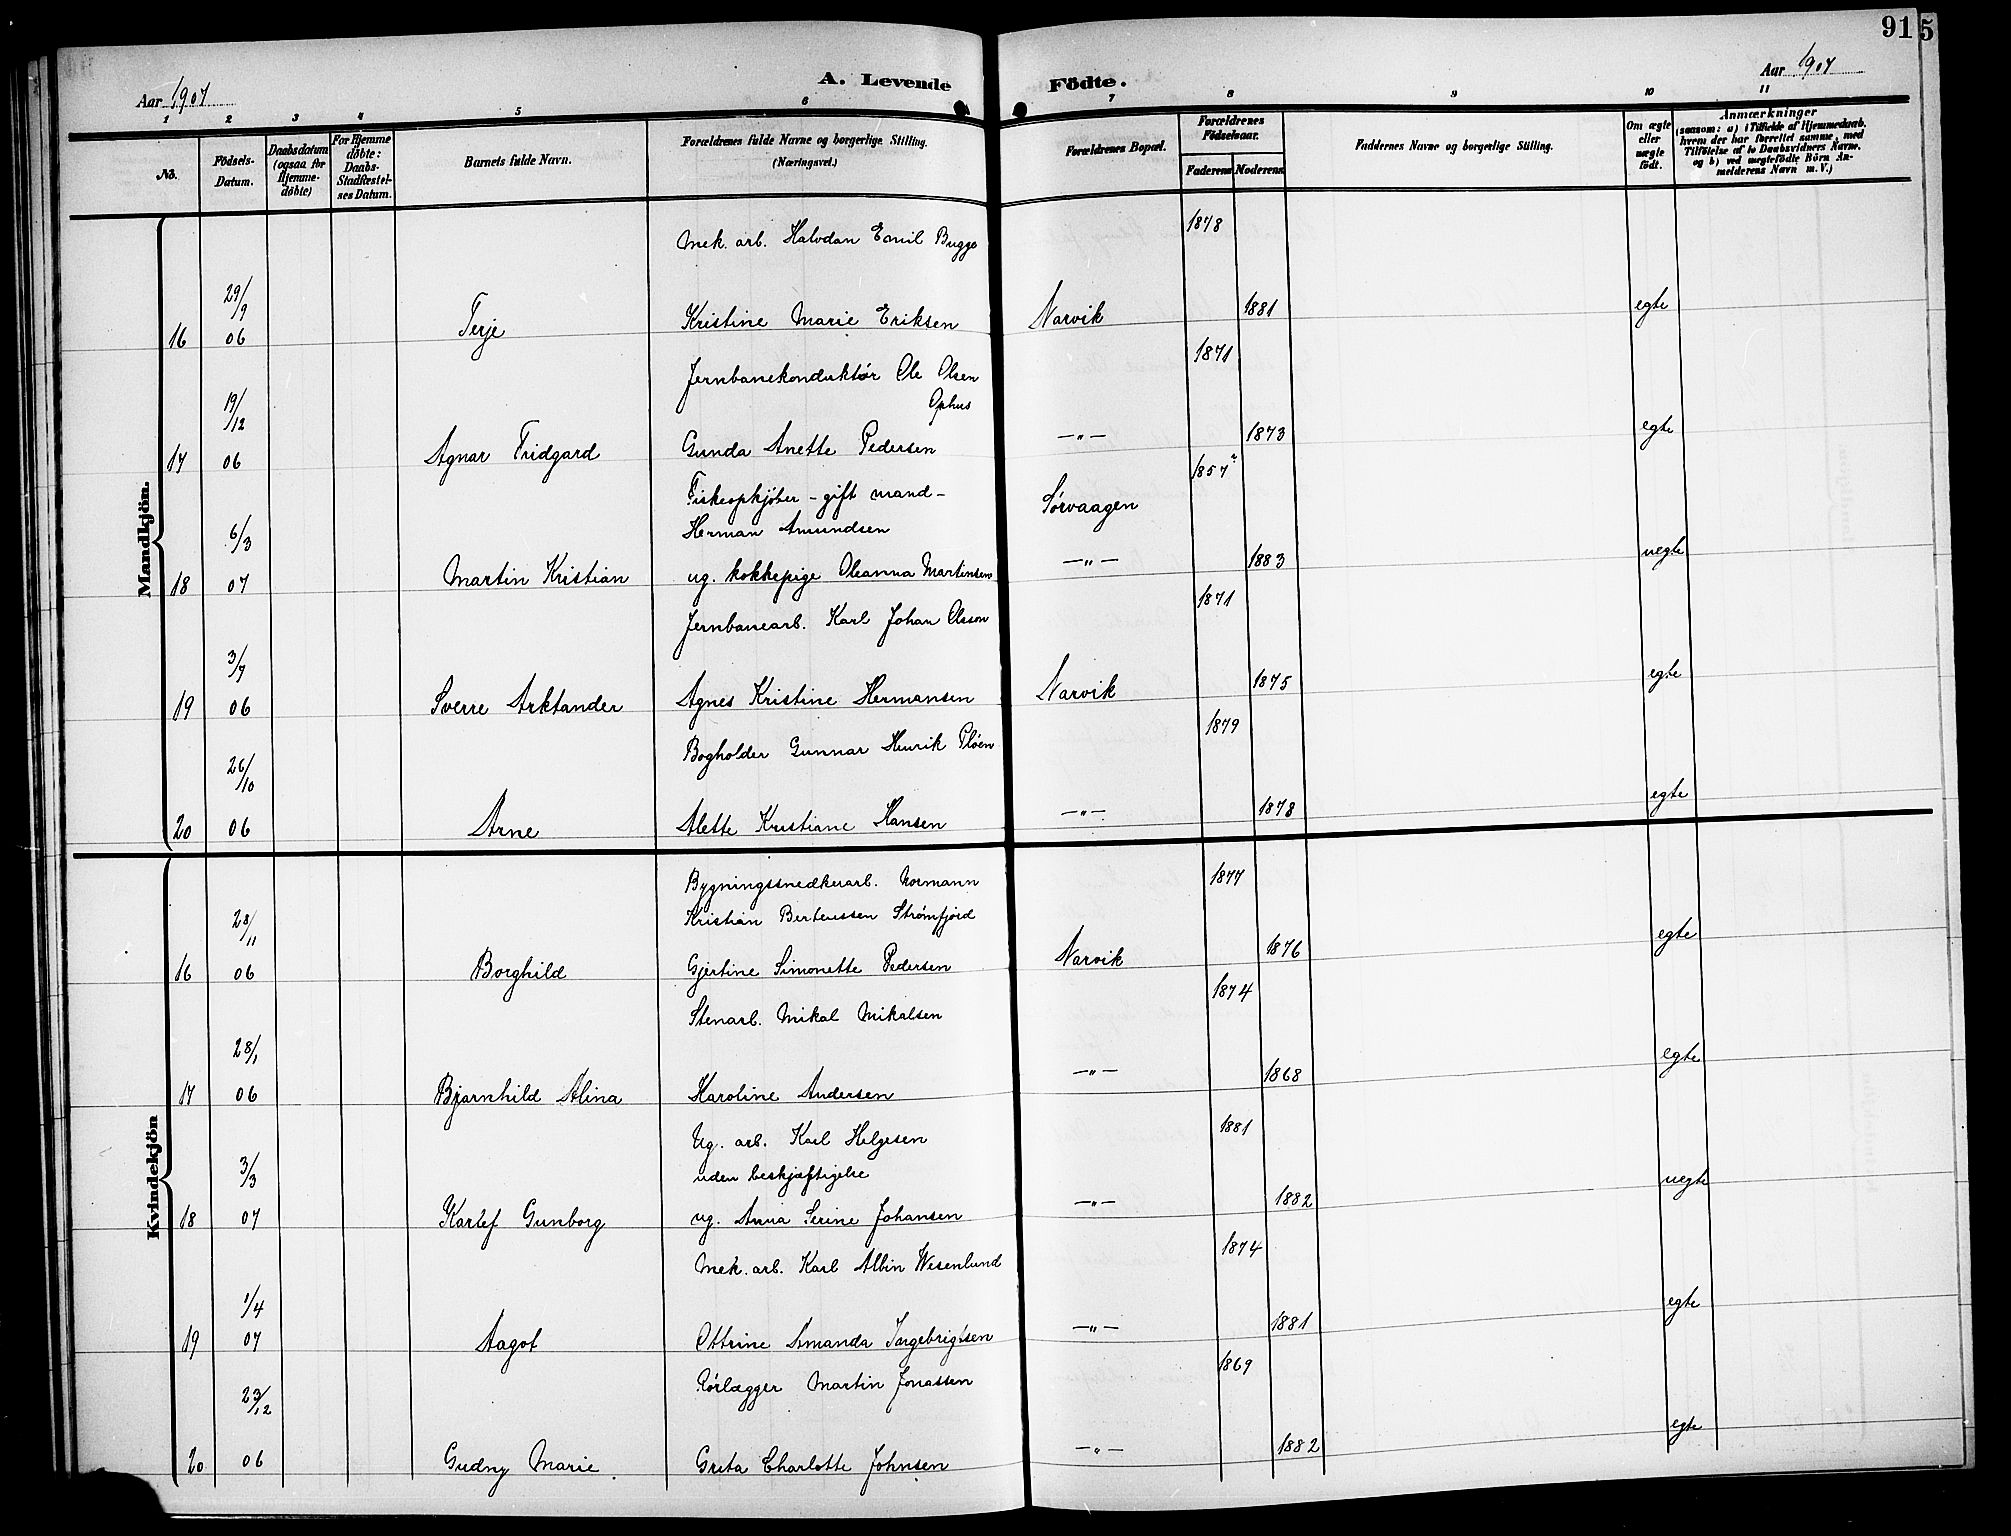 91 5
Aar 1907
A. Levende Födte.
Aar 1907
1 2 3 4 5 6 7 8 9 10 11
No.
Födsels-Datum.
Daabsdatum (ogsaa for Hjemme-döbte)
For Hjemme döbte: Daabs-Stadfæstel-ses Datum.
Barnets fulde Navn.
Forældrenes fulde Navne og borgerlige Stilling. (Næringsvei.)
Forældrenes Bopæl.
Forældrenes Födselsaar.
Faderens Moderens
Faddernes Navne og borgerlige Stilling.
Om ægte eller uægte født.
Anmærkninger
(saasom: a) i Tilfælde af Hjemmedaab, hvem der har forrettet samme, med Tilføielse af to Daabsvidners Navne, og b) ved uægtefödte Börn An-melderens Navn m. V.)
Mandkjön.
Mek. arb. Halvdan Emil Bugge 1878
16 29/9 06 Terje Kristine Marie Eriksen Narvik 1881 egte
Jernbanekonduktør Ole Olsen 1871
Ophus
17 19/12 06 Agnar Fridgard Gunda Anette Pedersen —"— 1873 egte
Fiskeopkjøber - gift mand - Sørvaagen 1857
Herman Amundsen
18 6/3 07 Martin Kristian ug. kokkepige Oleanna Martinsen —"— 1883 uegte
Jernbanearb. Karl Johan Olsson 1871
19 3/7 06 Sverre Arktander Agnes Kristine Hermansen Narvik 1875 egte
Bogholder Gunnar Henrik Pløen 1879
20 26/10 06 Arne Alette Kristiane Hansen —"— 1878 egte
Kvindekjön
Bygningssnedkerarb. Normann 1877
Kristian Berteussen Strømfjord
16 28/11 06 Borghild Gjertine Simonette Pedersen Narvik 1876 egte
Stenarb. Mikal Mikalsen 1874
17 28/1 06 Bjarnhild Alina Karoline Andersen —"— 1868 egte
Ug. arb. Karl Helgesen 1881
uden beskjæftigelse
18 3/3 07 Karlef Gunborg ug. Anna Serine Johansen —"— 1882 uegte
Mek. arb. Karl Albin Wesenlund 1874
19 1/4 07 Aagot Ottrine Amanda Ingebrigtsen —"— 1881 egte
Rørlægger Martin Jonassen 1869
20 23/12 06 Gudny Marie. Greta Charlotte Johnsen —"— 1882 egte